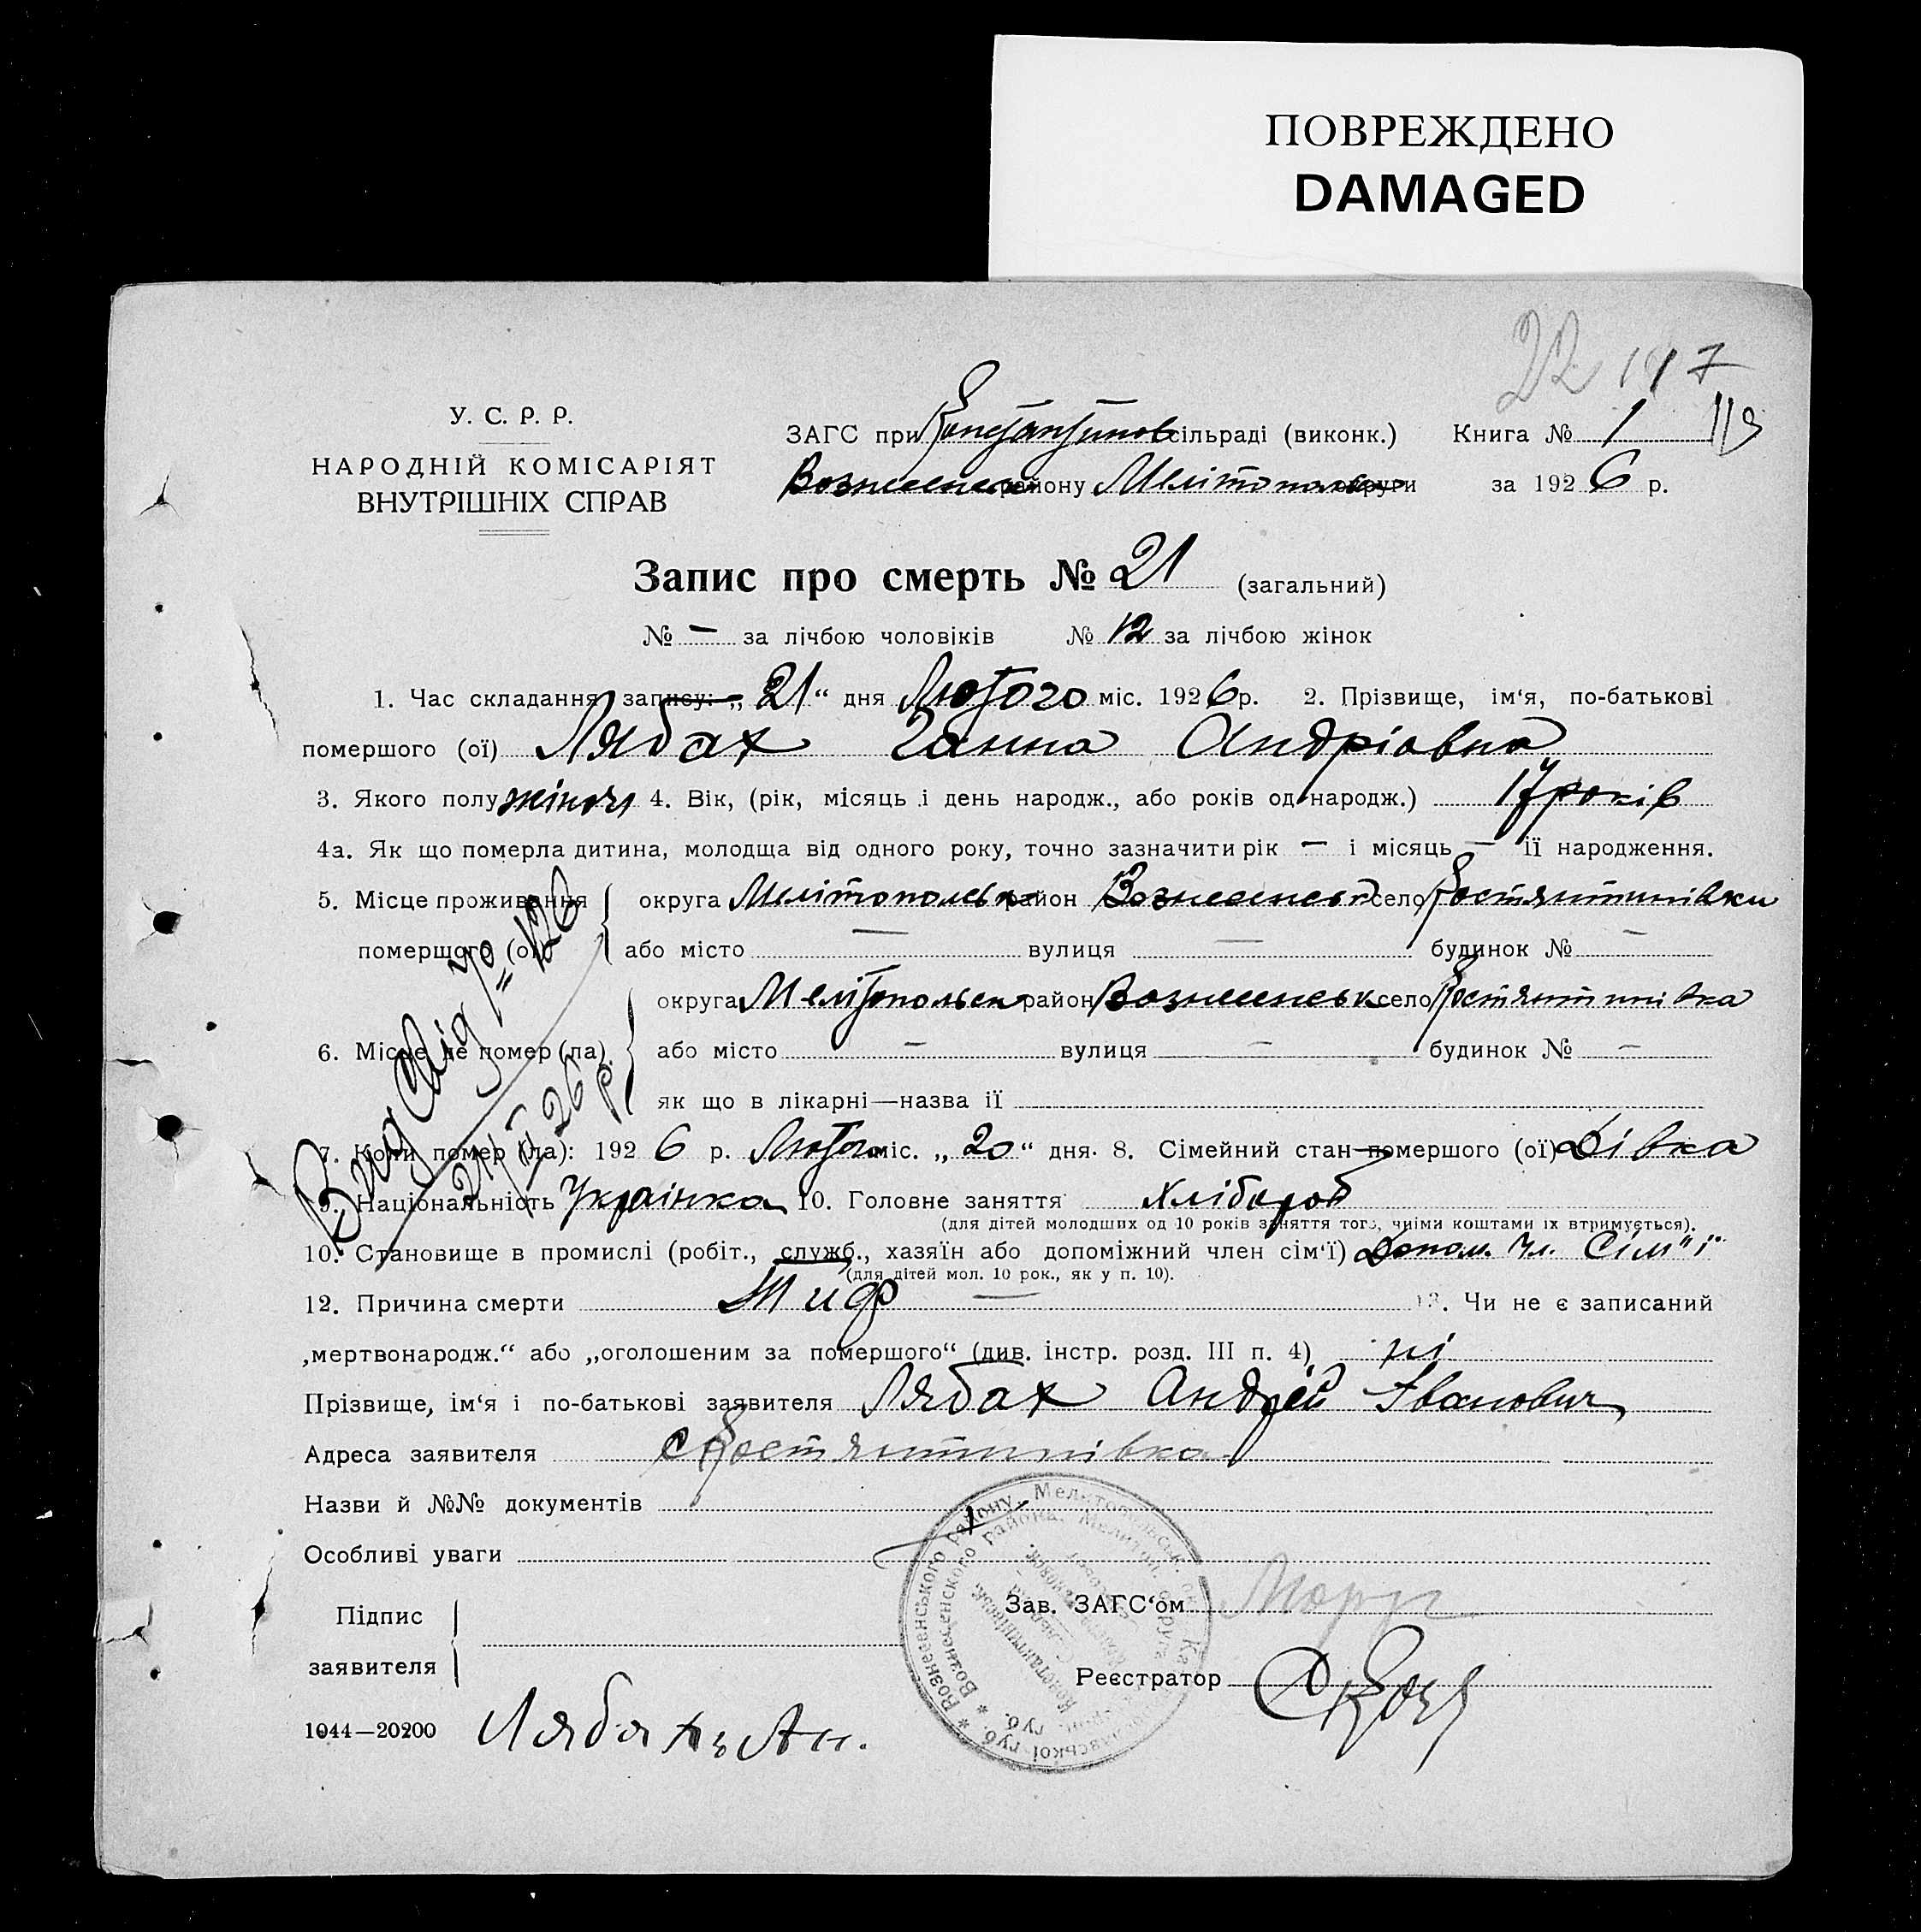 ПОВРЕЖДЕНО
DAMAGED
22 117
119
У. С. Р. Р.
НАРОДНІЙ КОМІСАРІЯТ
ВНУТРІШНІХ СПРАВ
ЗАГС при Констянтинов сільраді (виконк.) Книга № 1
Вознесенськ району Мелітопольськ округи за 1926 р.
Запис про смерть № 21 (загальний)
№ — за лічбою чоловіків № 12 за лічбою жінок
1. Час складання запису: „21“ дня Лютого міс. 1926 р. 2. Прізвище, ім‘я, по-батькові
помершого (ої) Лябах Ганна Андріовна
3. Якого полу жіночя 4. Вік, (рік, місяць і день народж., або років од народж.) 17 років
4а. Як що померла дитина, молодща від одного року, точно зазначити рік — і місяць — ії народження.
5. Місце проживання округа Мелітопольська район Вознесенськ село Костянтинівки
помершого (ої) або місто — вулиця — будинок № —
округа Мелітопольськ район Вознесенськ село Костянтинівка
6. Місце де помер (ла) або місто — вулиця — будинок № —
як що в лікарні—назва ії
7. Коли помер (ла): 1926 р. Лютого міс. „20“ дня. 8. Сімейний стан помершого (ої) Дівка
9. Національність Українка 10. Головне заняття Хлібороб
(для дітей молодших од 10 років заняття того, чиїми коштами їх втримується).
10. Становище в промислі (робіт., служб., хазяїн або допоміжний член сім‘ї) Допом. Чл. Сім"ї
(для дітей мол. 10 рок., як у п. 10).
12. Причина смерти Тиф — 13. Чи не є записаний
„мертвонародж.“ або „оголошеним за помершого“ (див. інстр. розд. III п. 4) ні
Прізвище, ім‘я і по-батькові заявителя Лябах Андрій Іванович
Адреса заявителя с Костянтинівка
Назви й №№ документів
Особливі уваги
Підпис
заявителя
Зав. ЗАГС‘ом
Реєстратор
1044—20200
Лябахъ Ан.